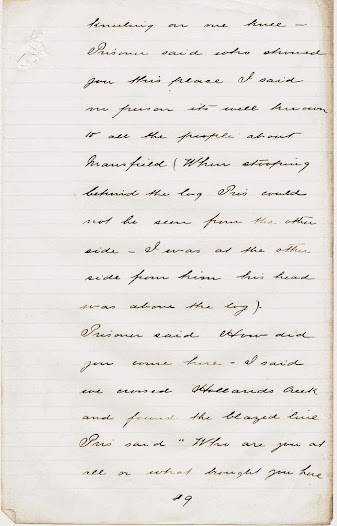 kneeling on one knee –
Prisoner said who showed
you this place I said
no person its well known
to all the people about
Mansfield (When stooping
behind the log Pris could
not be seen from the other
side – I was at the other
side from him his head
was above the log).
Prisoner said How did
you come here – I said
we crossed Hollands Creek
and found the blazed line
Pris said "Who are you at
all or what brought you here
89